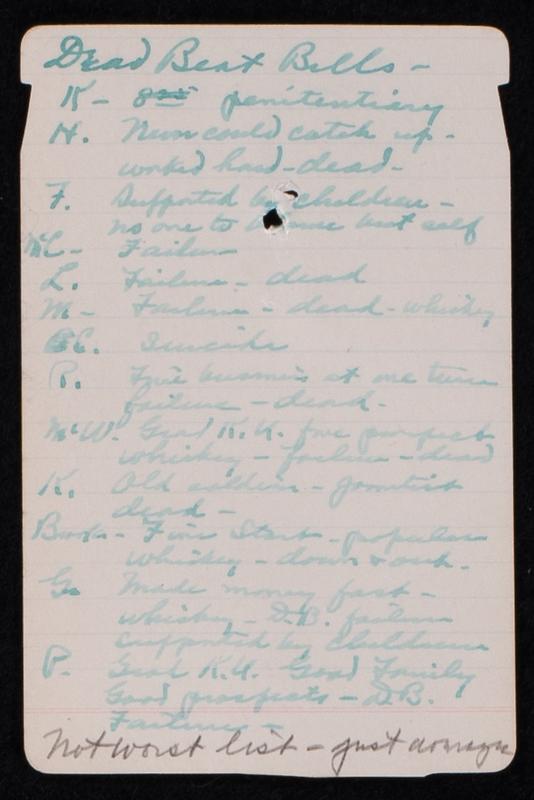 Dead Beat Bills -
K - penitentiary
H. Never could catch up -
worked hard - dead -
F. Supported by children -
no one to blame but self
McC - Failure
L. Failure - dead
M - Failure - dead - whiskey
C. Suicide
R. Fine business at one time
failure - dead -
McW. Grad K.U. fine prospect
whiskey - failure - dead
K. Old soldier -
dead -
Fine Start - popular
whiskey - down & out -
G. Made money fast -
whiskey - D.B. failure
supported by children
P. Grad K.U. Good Family
Good prospects - D.B.
Failure -
Not worst list - just average